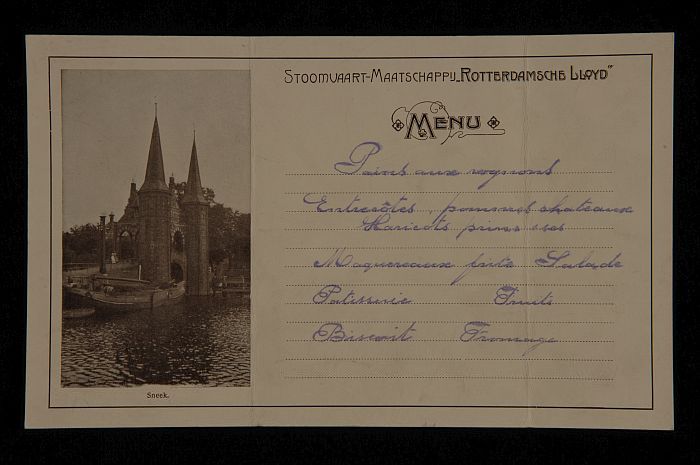 STOOMVAART-MAATSCHAPPIJ „ROTTERDAMSCHE LLOYD”
MENU
Pains aux rognons
Entrecôtes, pommes chateaux
Haricots princesses
Maquereaux frits Salade
Patisserie Fruits
Biscuit Fromage
Sneek.